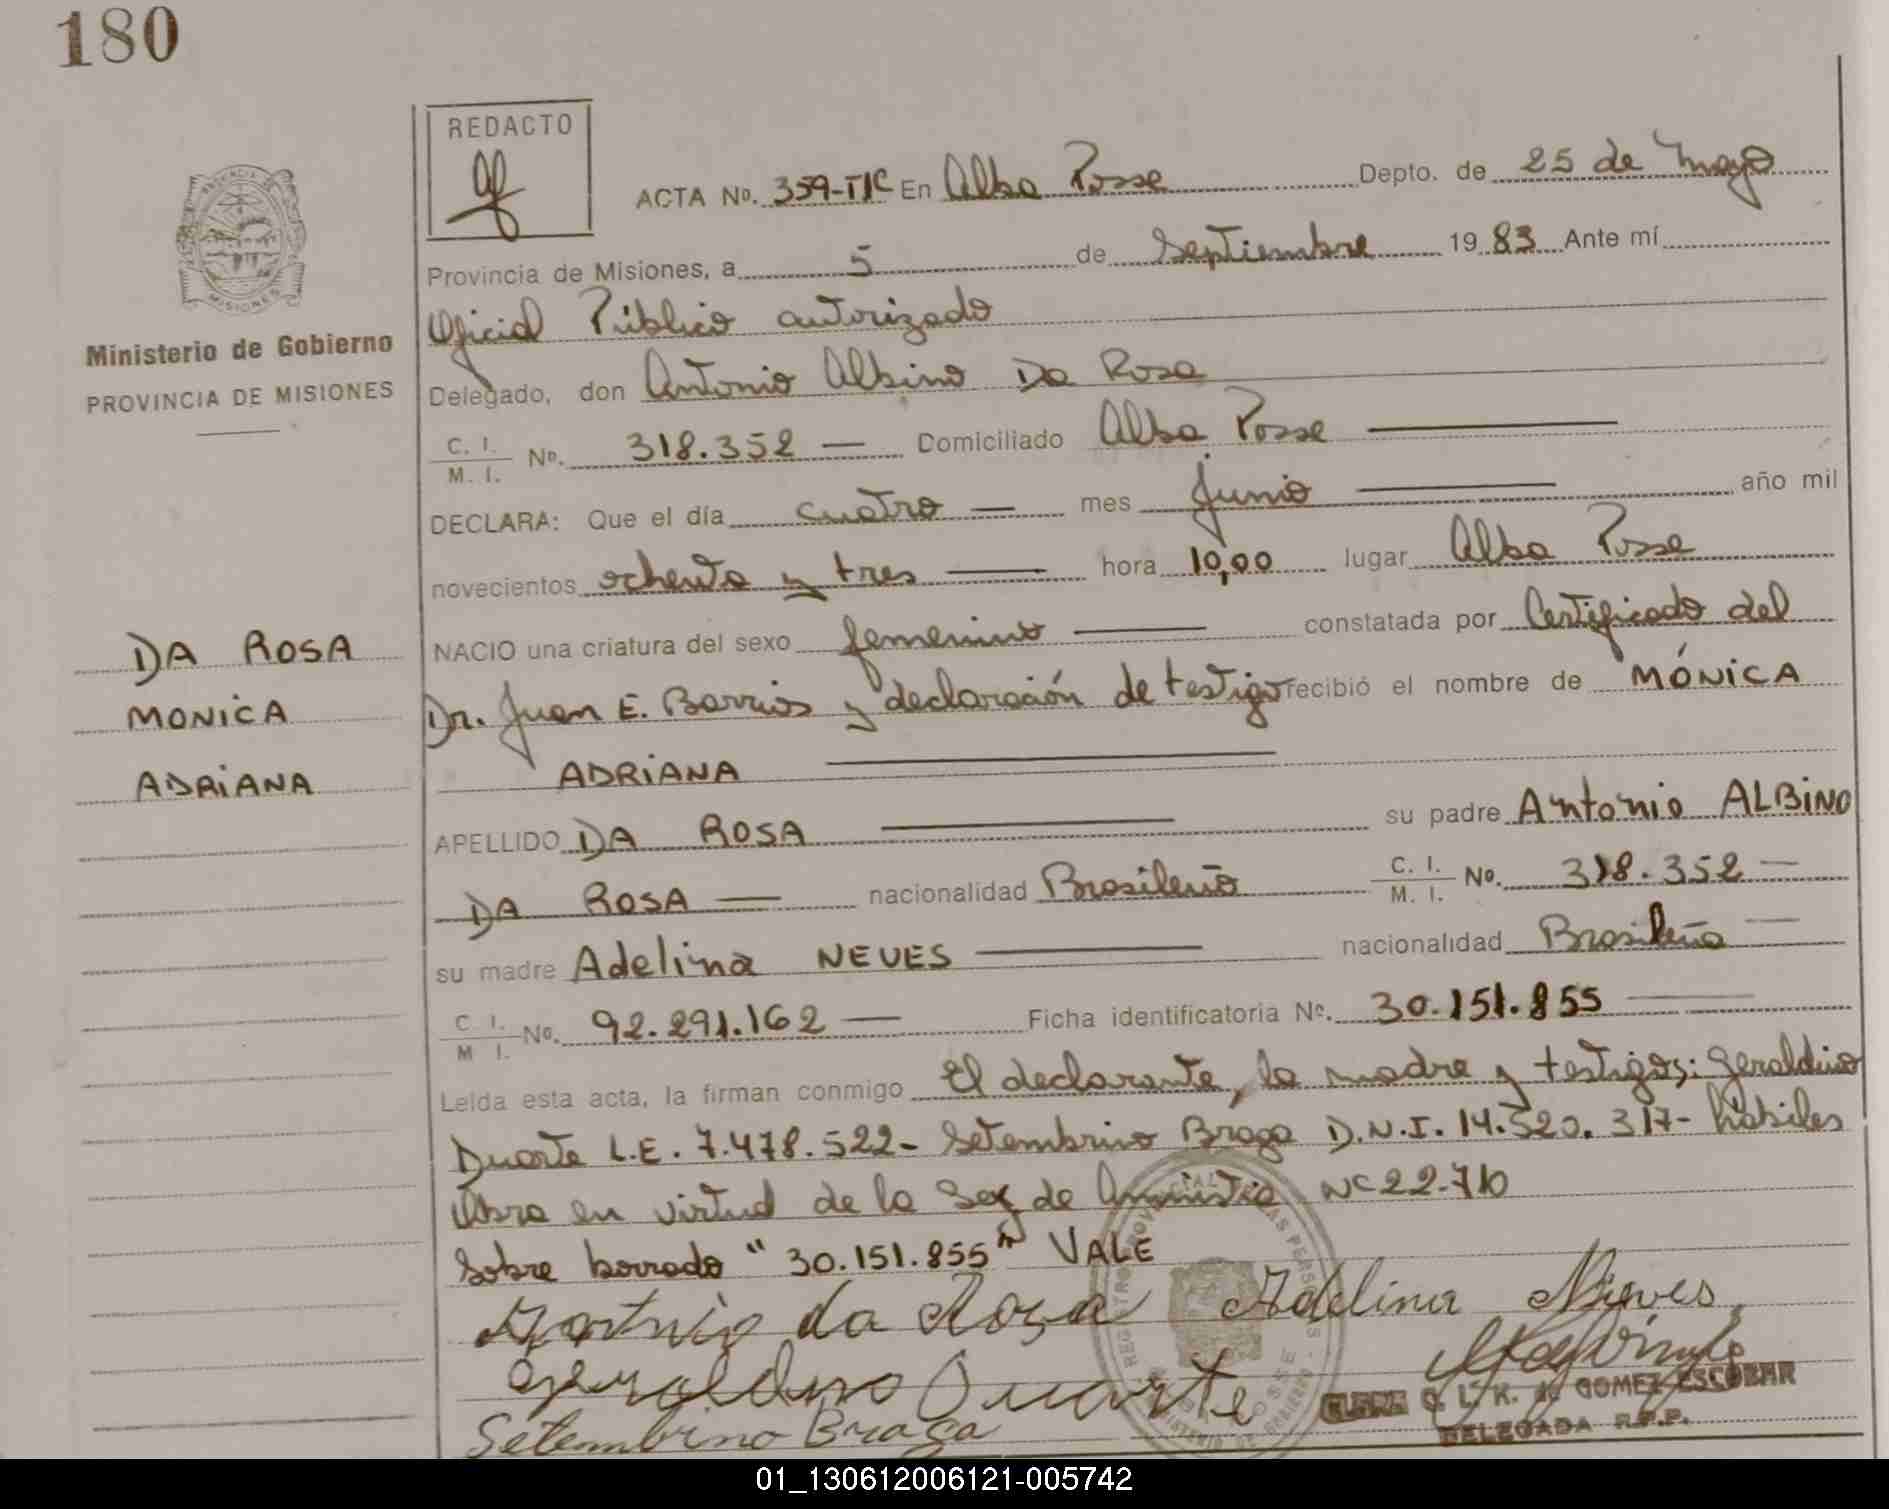 180
REDACTO
ACTA No. 359-TIC En Alba Posse Depto. de 25 de Mayo
Provincia de Misiones, a 5 de Septiembre 1983 Ante mí
Oficial Público autorizado
Ministerio de Gobierno
PROVINCIA DE MISIONES
Delegado, don Antonio Albino Da Rosa
C. I. / M. I. No. 318.352 — Domiciliado Alba Posse —
DECLARA: Que el día cuatro — mes Junio — año mil
novecientos ochenta y tres — hora 10,00 lugar Alba Posse
DA ROSA
MONICA
ADRIANA
NACIO una criatura del sexo femenino — constatada por Certificado del
Dr. Juan E. Barrios y declaración de testigo recibió el nombre de MÓNICA
ADRIANA —
APELLIDO DA ROSA — su padre Antonio ALBINO
DA ROSA — nacionalidad Brasileño C. I. / M. I. No. 318.352 —
su madre Adelina NEVES — nacionalidad Brasileña —
C. I. / M. I. No. 92.291.162 — Ficha identificatoria No. 30.151.855 —
Leída esta acta, la firman conmigo El declarante, la madre y testigos: Geraldino
Duarte L.E. 7.478.522- Setembrino Braga D.N.I. 14.520.317- hábiles
Obra en virtud de la Ley de Amnistia No 22.710
Sobre borrado " 30.151.855" VALE
Antonio da Rosa Adelina Nieves
Geraldino Duarte
Setembrino Braga
CLARA G. L. K. de GOMEZ ESCOBAR
DELEGADA R.P.P.
01_130612006121-005742